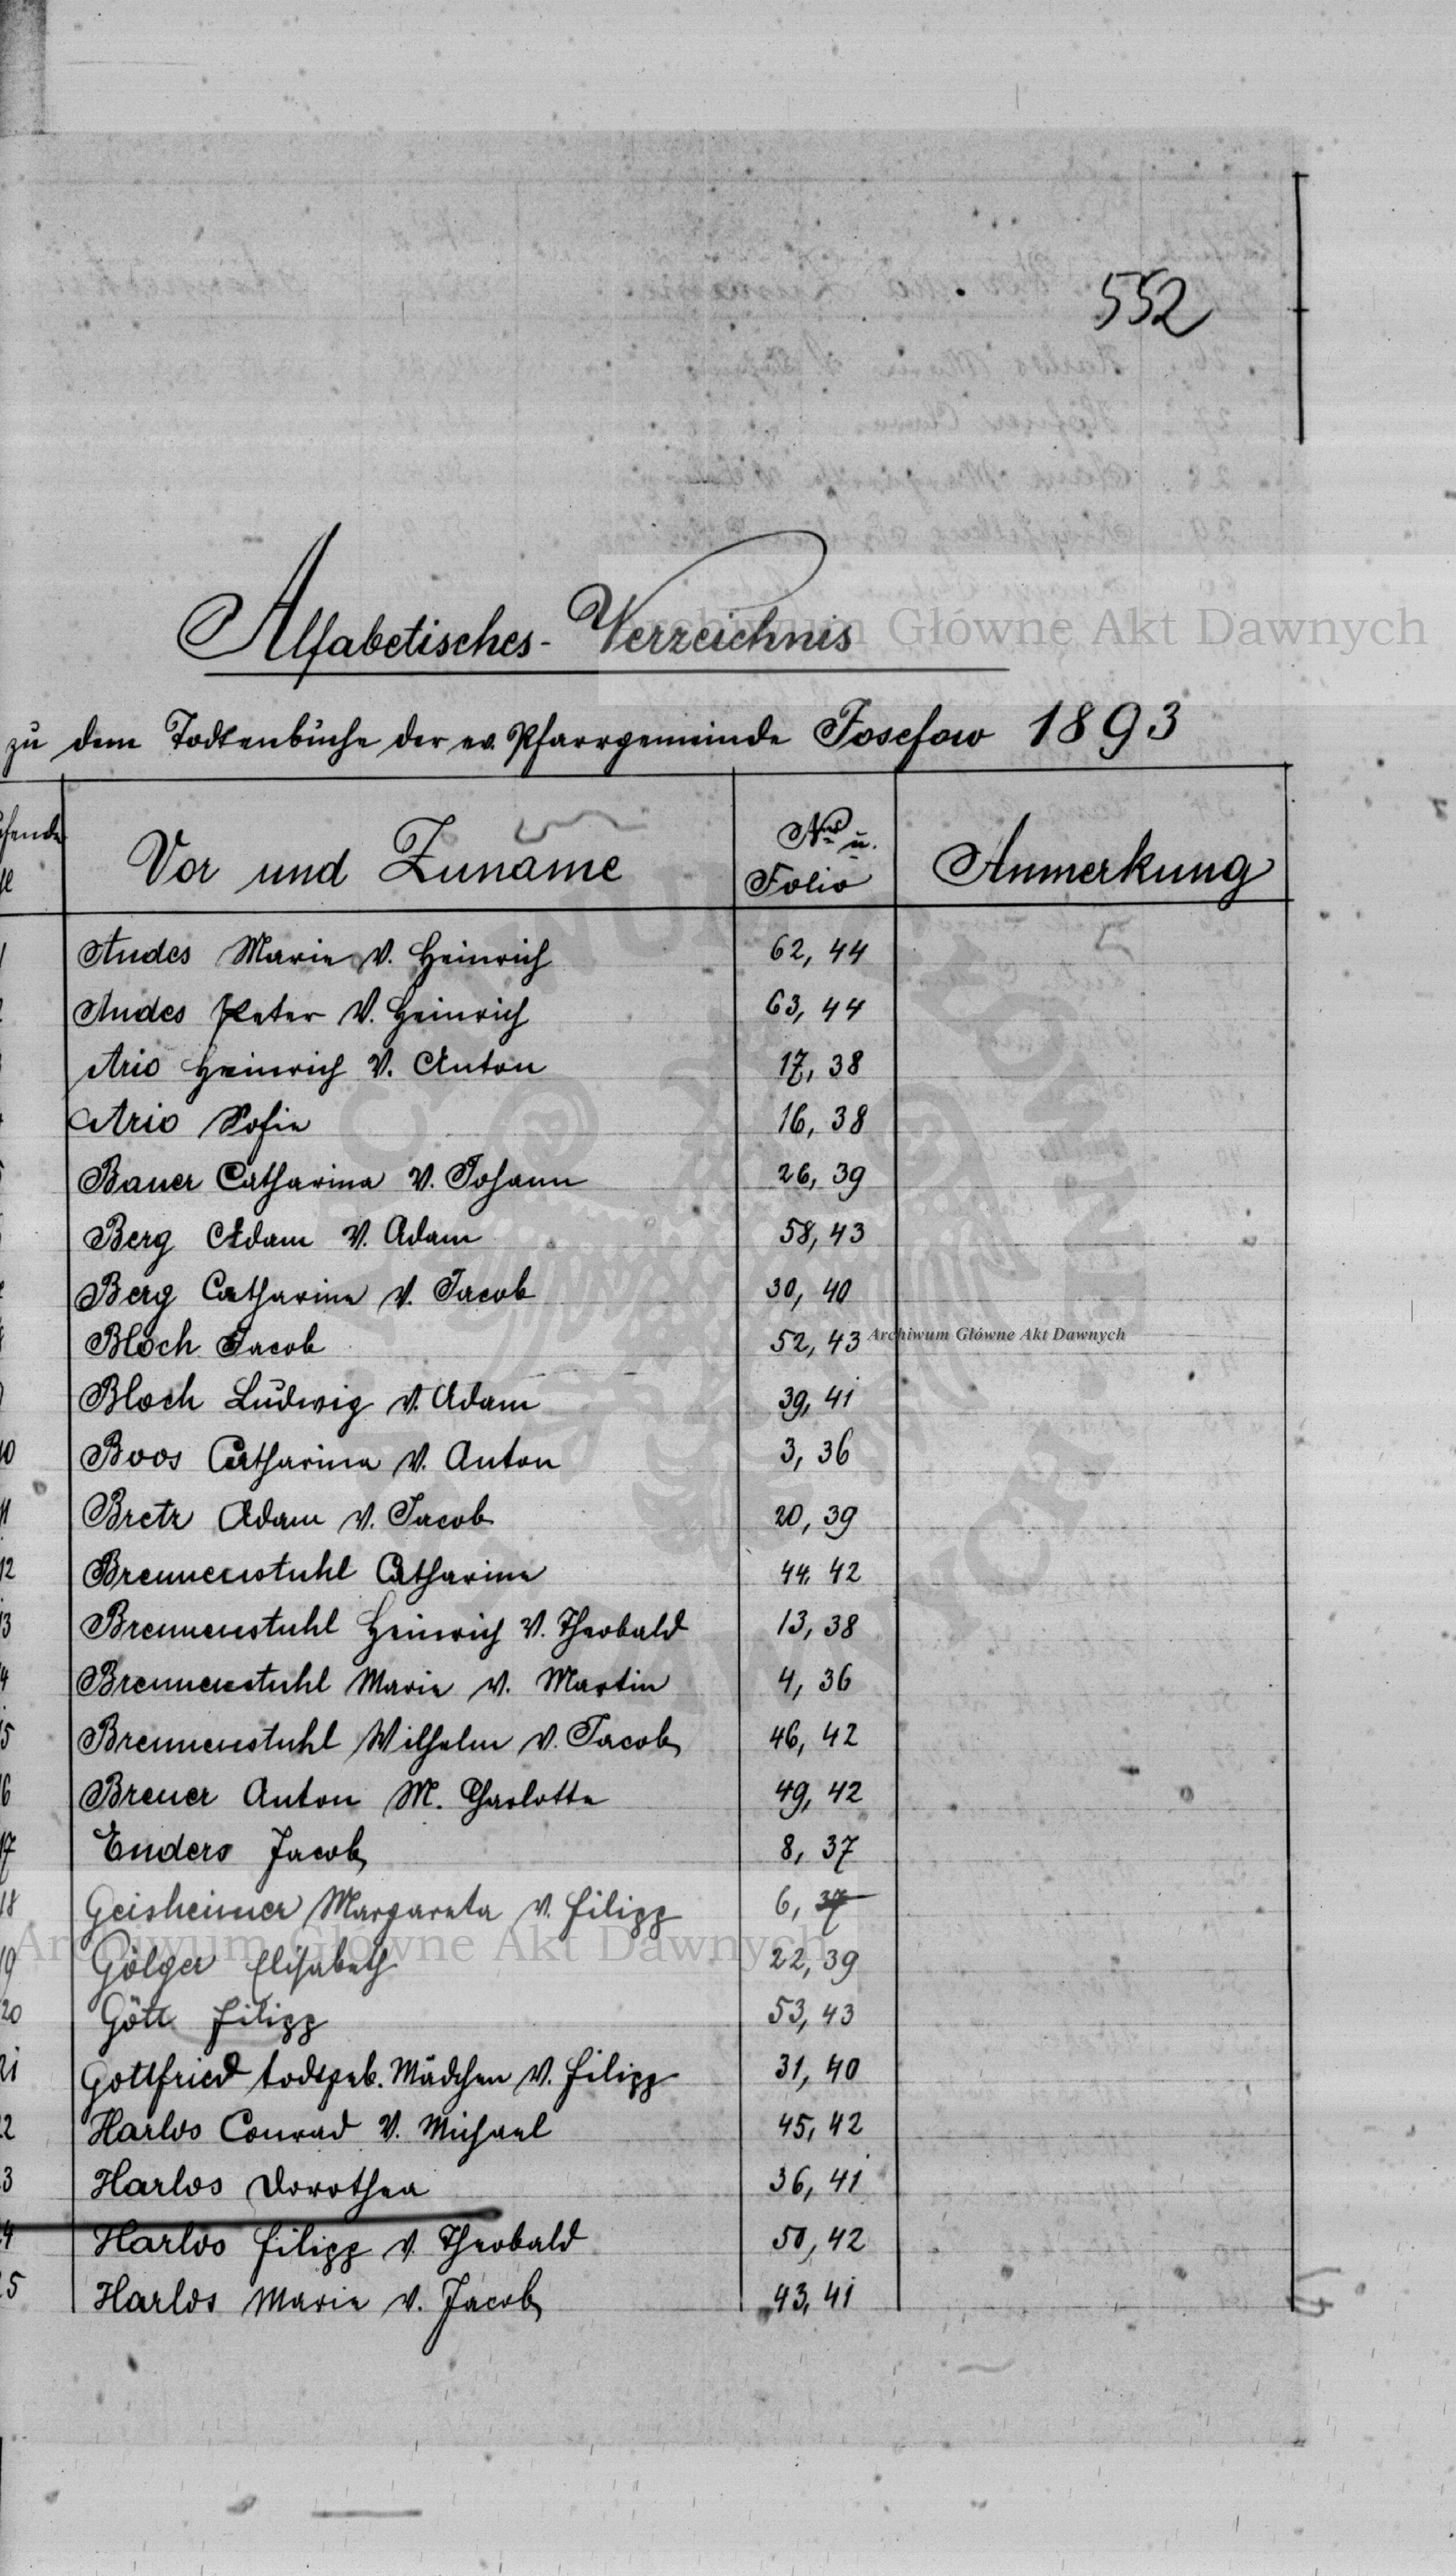 552
Alfabetisches-Verzeichnis
zu dem Todtenbuche der ev. Pfarrgemeinde Josefow 1893
Vor und Zuname Nro u. Folio Anmerkung
1 Andes Marie V. Heinrich 62, 44
Andes Peter V. Heinrich 63, 44
Ario Heinrich V. Anton 17, 38
Ario Sofie 16, 38
Bauer Catharina V. Johann 26, 39
Berg Adam V. Adam 58, 43
Berg Catharina V. Jacob 30, 40
Bloch Jacob 52, 43
Bloch Ludwig V. Adam 39, 41
10 Boos Catharina V. Anton 3, 36
11 Bretz Adam V. Jacob 20, 39
12 Brennenstuhl Catharina 44, 42
3 Brennenstuhl Heinrich V. Theobald 13, 38
4 Brennenstuhl Marie V. Martin 4, 36
5 Brennenstuhl Wilhelm V. Jacob 46, 42
6 Breuer Anton M. Charlotte 49, 42
17 Enders Jacob 8, 37
18 Geisheimer Margareta V. Filipp 6, 37
19 Gölger Elisabeth 22, 39
20 Göttl Filipp 53, 43
21 Gottfried todtgeb. Mädchen V. Filipp 31, 40
2 Harlos Conrad V. Michael 45, 42
3 Harlos Dorothea 36, 41
4 Harlos Filipp V. Theobald 50, 42
5 Harlos Marie V. Jacob 43, 41
Archiwum Główne Akt Dawnych
Archiwum Główne Akt Dawnych
Archiwum Główne Akt Dawnych